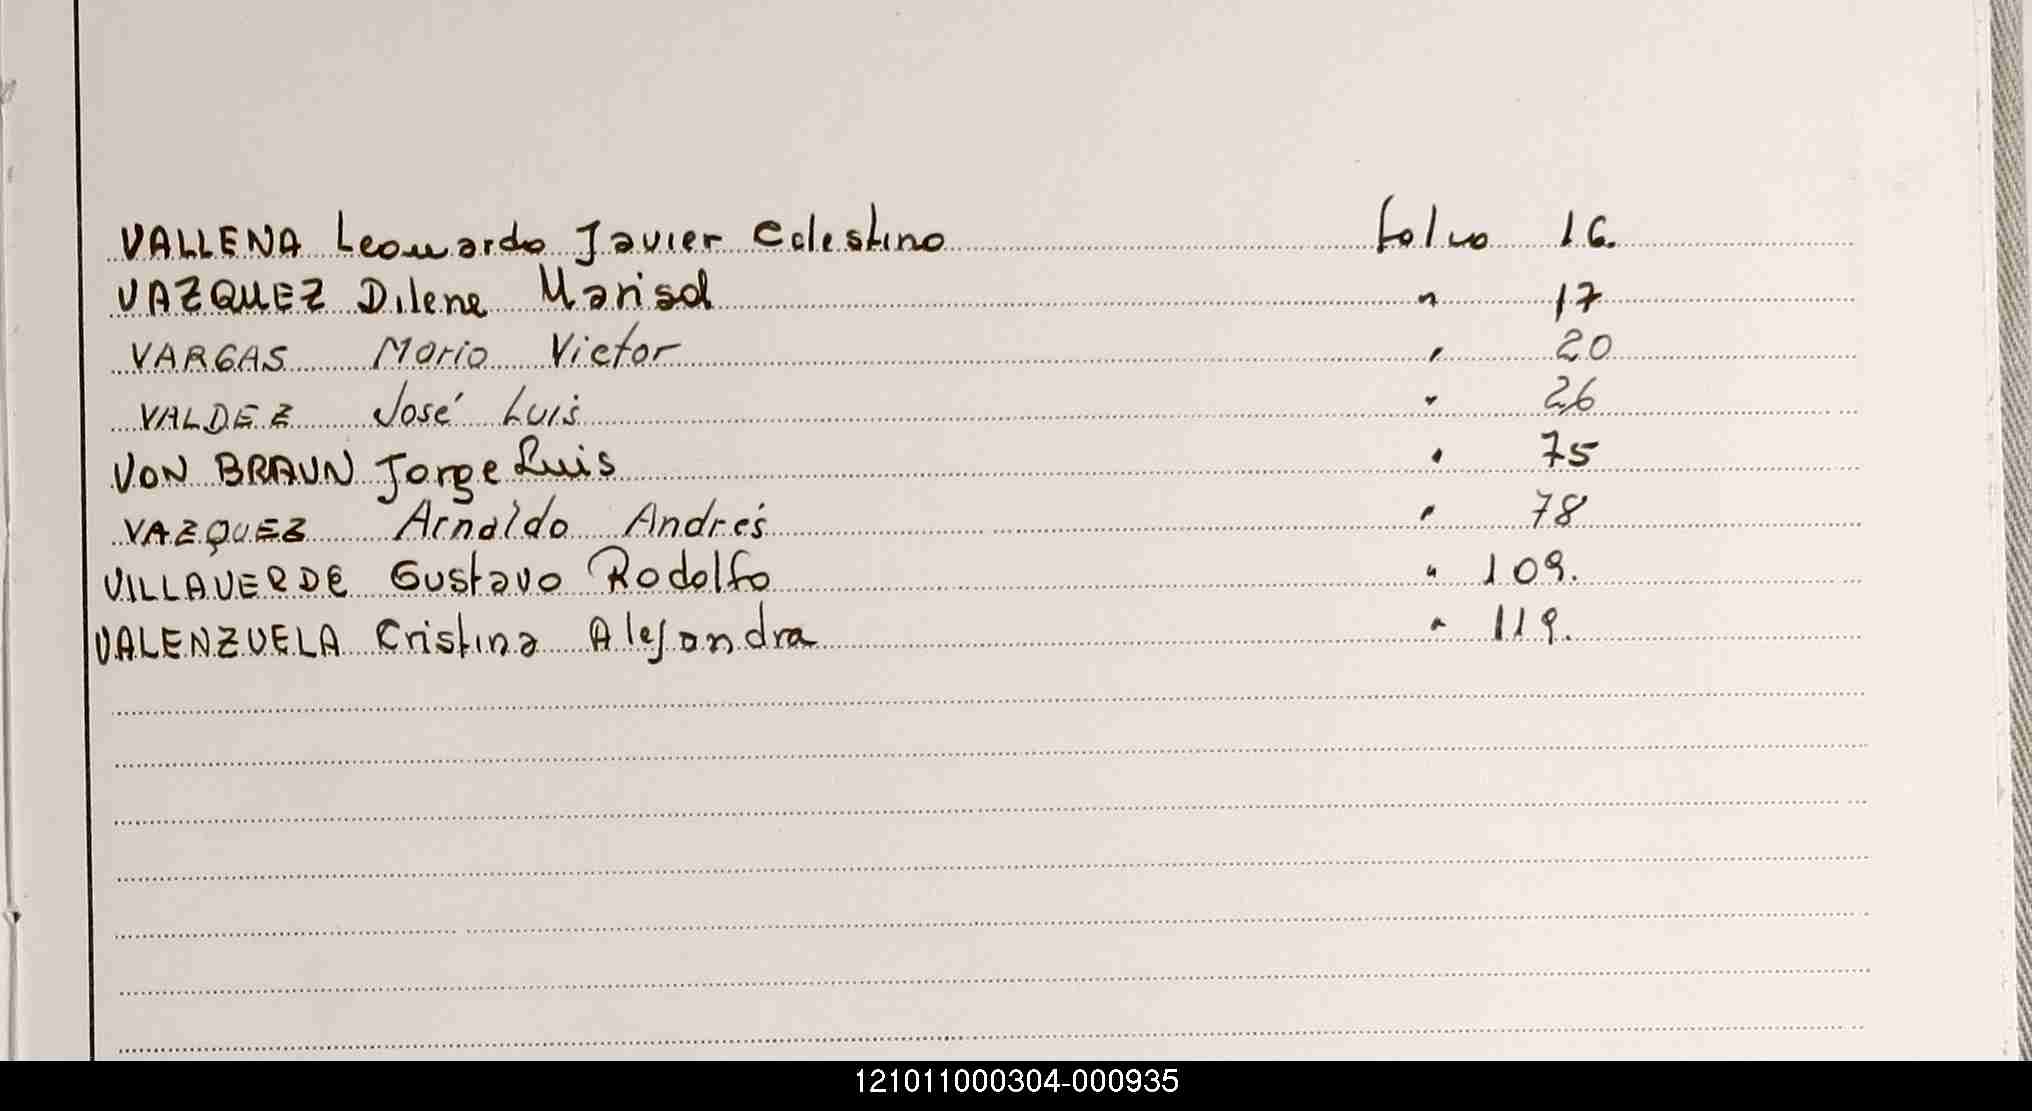 VALLENA Leonardo Javier Celestino folio 16.
VAZQUEZ Dilene Marisol " 17
VARGAS Mario Victor " 20
VALDEZ José Luis " 26
VON BRAUN Jorge Luis " 75
VAZQUEZ Arnaldo Andrés " 78
VILLAVERDE Gustavo Rodolfo " 109.
VALENZUELA Cristina Alejandra " 119.
121011000304-000935